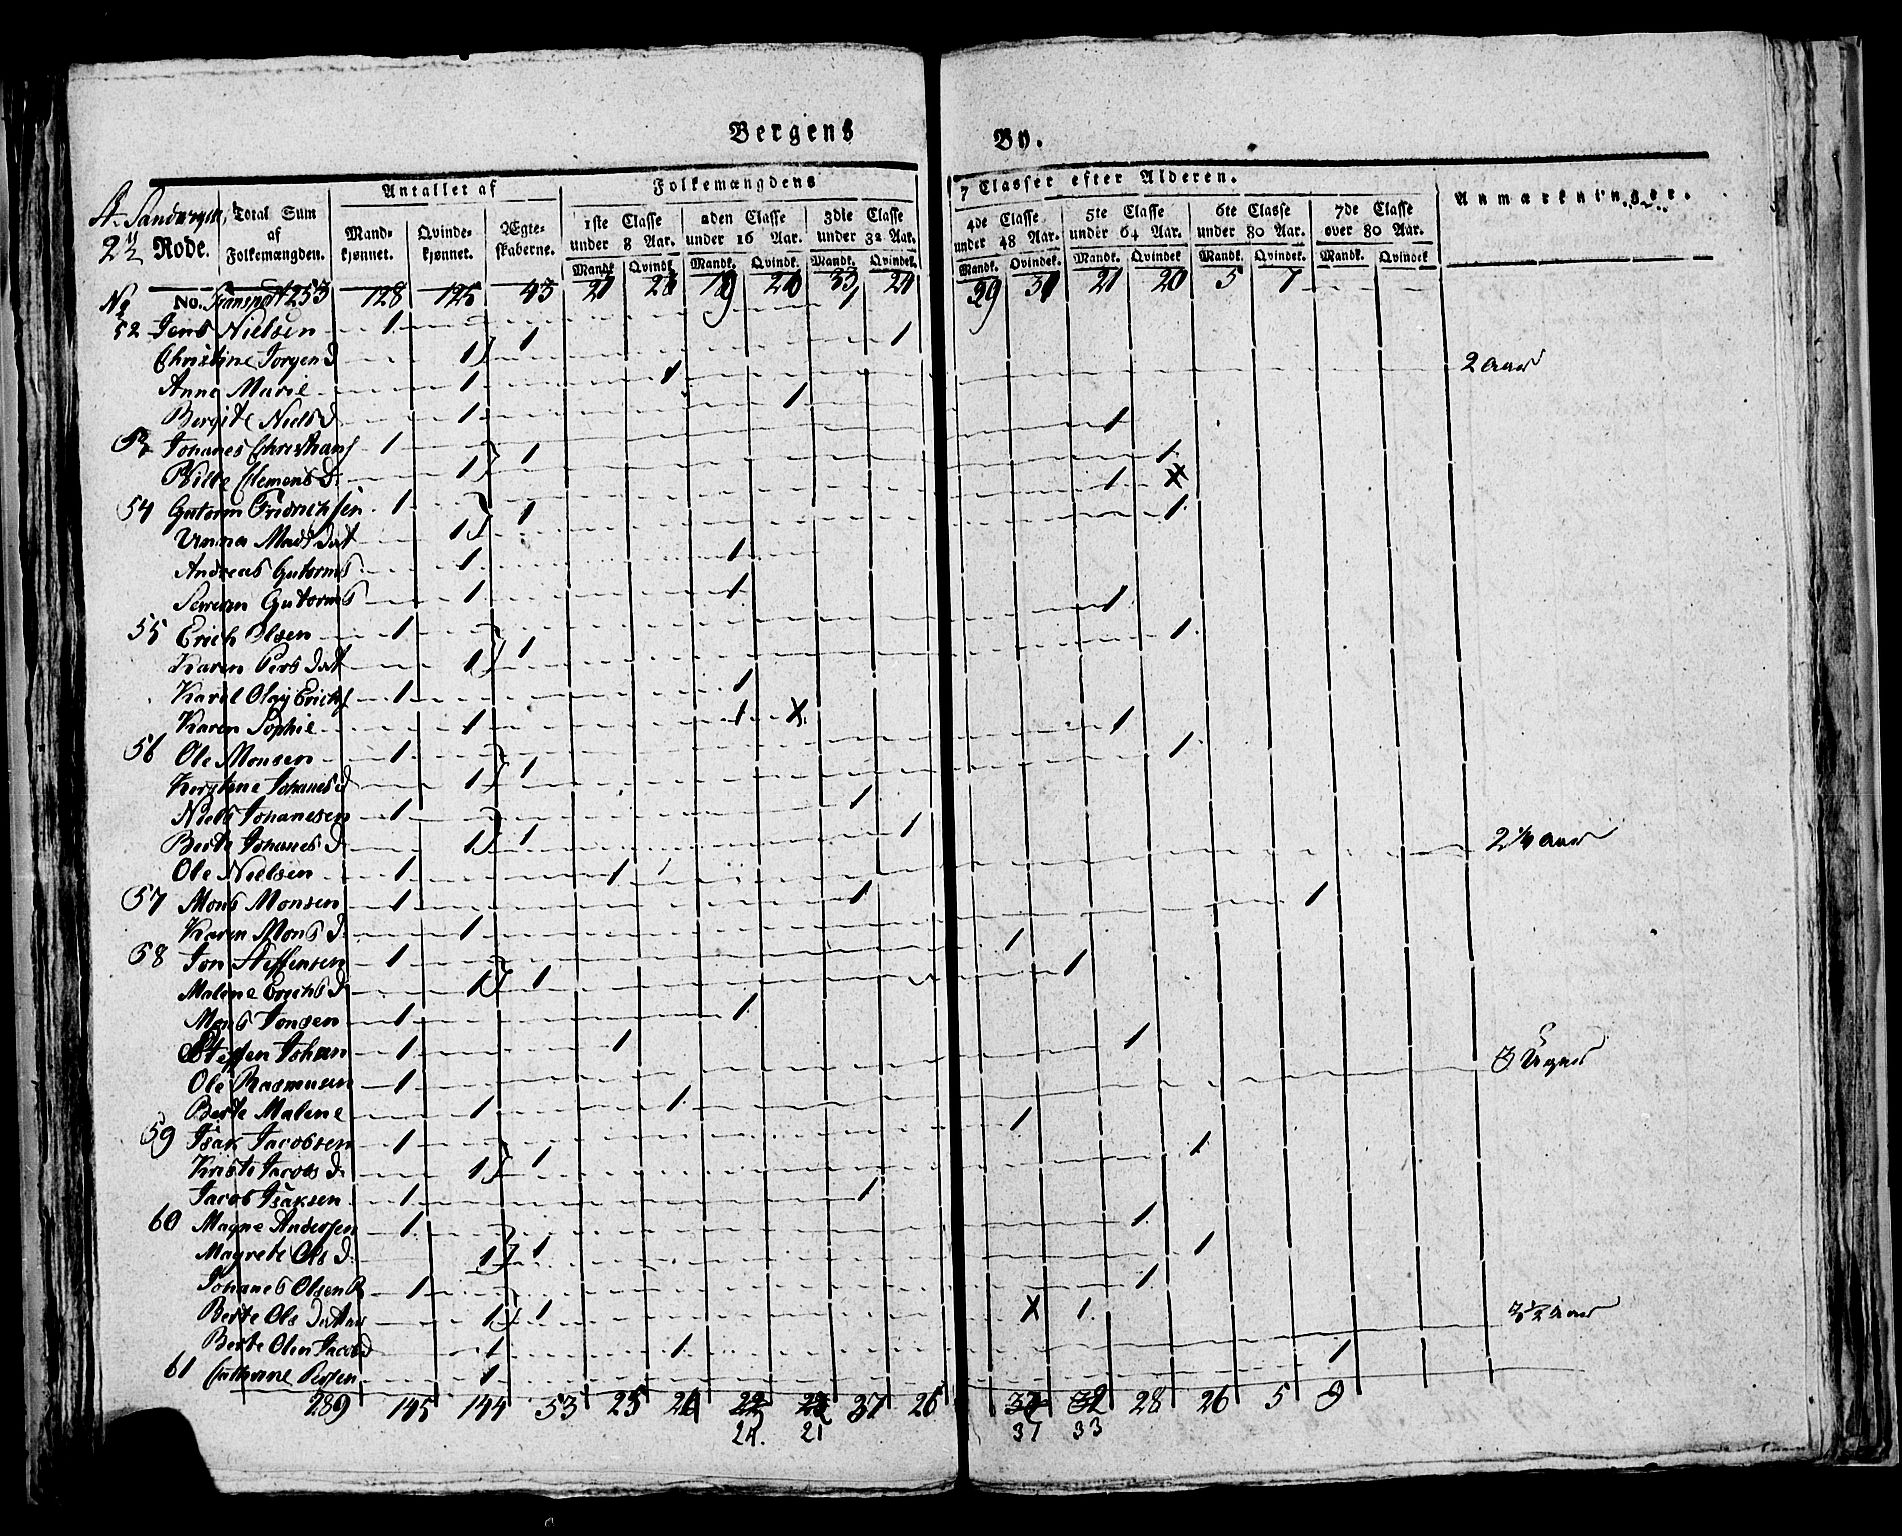 Bergens By.
St. Sandvigen,
2 Rode.
Total Sum af Folkemængden.
Antallet af
Mandkjønnet. Qvindekjønnet. Ægteskaberne.
Folkemængdens 7 Classer efter Alderen.
1ste Classe under 8 Aar. 2den Classe under 16 Aar. 3die Classe under 32 Aar. 4de Classe under 48 Aar. 5te Classe under 64 Aar. 6te Classe under 80 Aar. 7de Classe over 80 Aar.
Mandk. Qvindk. Mandk. Qvindk. Mandk. Qvindek. Mandk. Qvindek. Mandk. Qvindek. Mandk. Qvindek. Mandk. Qvindek
Anmærkninger.
No. No. Transpt 253 128 125 43 33 21 20 5 7
52 Jens Nielsen 1 1 1
Christine Jorgen D 1 1
Anne Marie 1 1 2 Aar
Bergite Niels D 1 1
53 Johanes Christians 1 1 1
Bille Clemens D. 1 1
54 Gutorm Fridrichsen 1 1 1 X
Unna Mads Dat 1 1
Andreas Gutorms 1 1
Sewerin Gutorms 1 1
55 Erich Olsen 1 1 1
Karen Pers Dat 1 1
Karel Olay Erichs 1 1
Karen Sophie 1 1 X
56 Ole Monsen 1 1 1
Kerstine Johanes D 1 1
Niels Johanesen 1 1 1
Berte Johanes D 1 1
Ole Nielsen 1 1 2 1/4 Aar
57 Mons Monsen 1 1
Karen Mons D. 1 1
58 Jon Steffensen 1 1 1
Malene Erichs D 1 1
Mons Jonsen 1 1
Steffen Johan 1 1
Ole Rasmusen 1 1
Berte Malene 1 1 3 Uger
59 Isak Jacobsen 1 1 1
Kristi Jacobs D. 1 1
Jacob Isaksen 1 1
60 Magne Andersen 1 1 1
Magrete Ols D. 1 1
Johanes Olsen 1 1 1
Berte Ols Datter 1 X 1
Berte Olin Jacobs D 1 1 3 1/2 Aar
61 Cathrine Persen 1 1
289 145 144 53 25 37 28 26 5
21 37 33